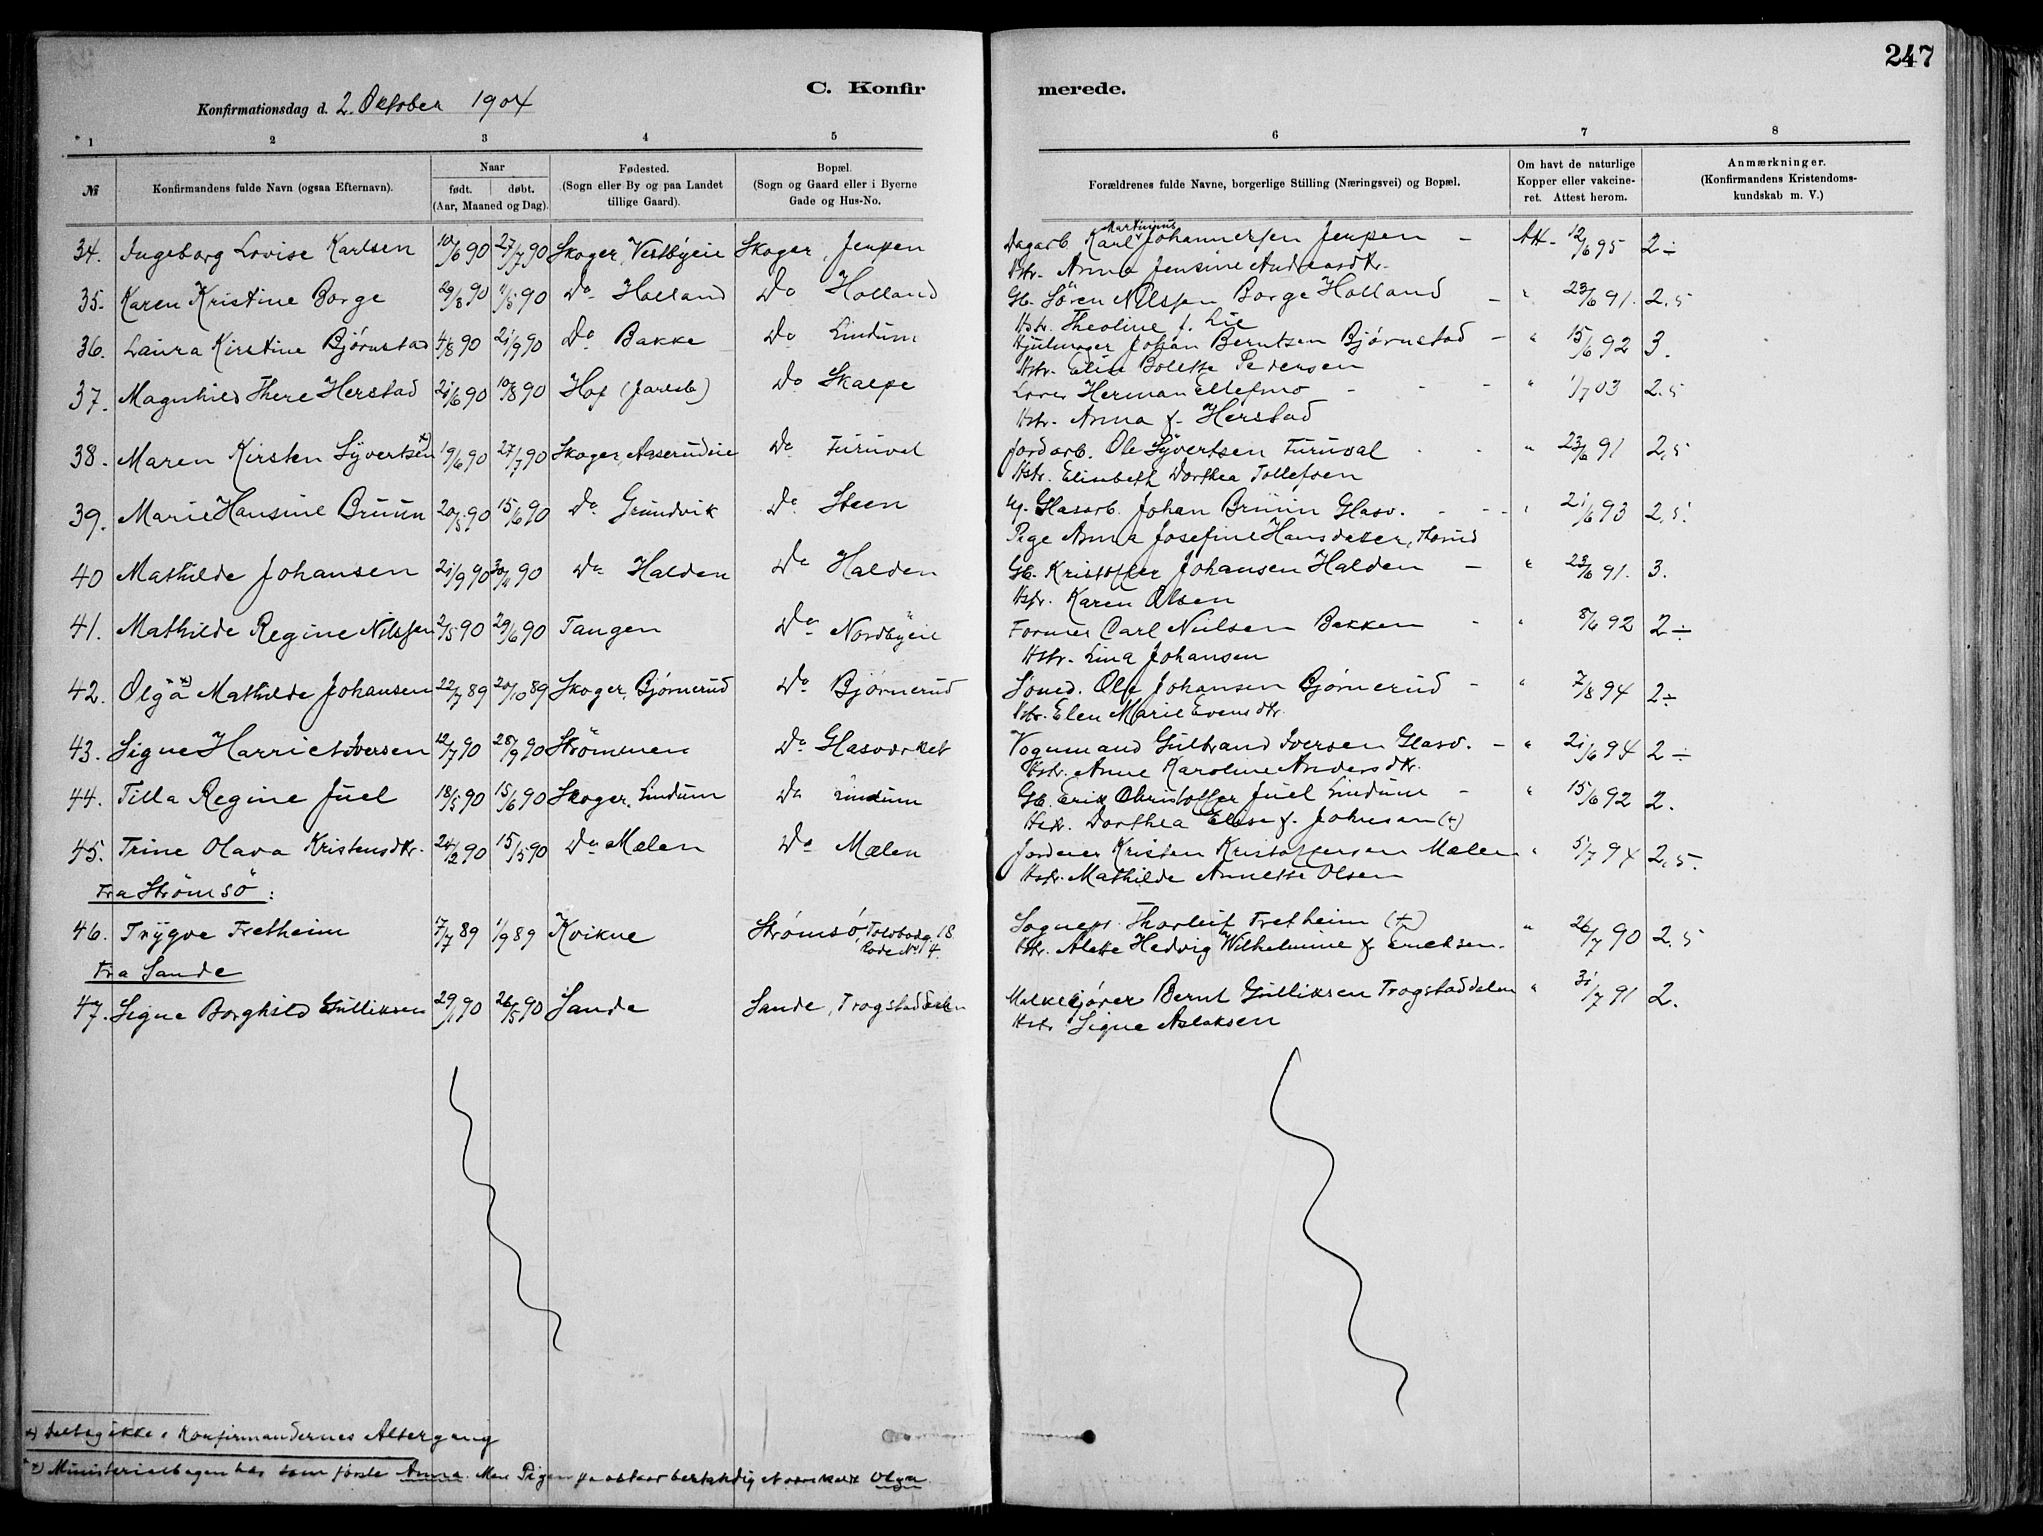 247
C. Konfir
merede.
Konfirmationsdag d. 2. Oktober 1904
1 2 3 4 5 6 7 8
№
Konfirmandens fulde Navn (ogsaa Efternavn).
Naar
født. døbt.
(Aar, Maaned og Dag).
Fødested.
(Sogn eller By og paa Landet
tillige Gaard).
Bopæl.
(Sogn og Gaard eller i Byerne
Gade og Hus-No.
Forældrenes fulde Navne, borgerlige Stilling (Næringsvei) og Bopæl.
Om havt de naturlige
Kopper eller vakcine-
ret. Attest herom.
Anmærkninger.
(Konfirmandens Kristendoms-
kundskab m. V.)
34. Ingeborg Lovise Karlsen 10/6 90 27/7 90 Skoger, Vestbyeie Skoger, Jerpen Dagarb. Karl Martinius Johannersen Jerpen - Att- 12/6 95 2 ÷
Hstr. Anna Jensine Andreasdtr.
35. Karen Kristine Borge 29/3 90 11/5 90 Do Holland Do Holland Gb. Sören Nilssen Borge Holland - " 23/6 91. 2,5
Hstr. Theoline f. Lie
36. Laura Kirstine Bjørnstad 4/8 90 21/9 90 Do Bakke Do Lindum Hjulmager Johan Berntsen Bjørnstad - " 15/6 92 3.
Hstr. Elise Bolette Pedersen
37. Magnhild There Herstad 21/6 90 10/8 90 Hof (Jarlsb) Do Skalpe Herman Ellefmo - - - " 1/7 03 2.5
Hstr. Anna f. Herstad
38. Maren Kirsten Syvertsen x) 19/6 90 27/7 90 Skoger, Aaserudeie Do Furuval Jordarb. Ole Syvertsen Furuval " 23/6 91 2,5
Hstr. Elisabeth Dorthea Tollefsen
39. Marie Hansine Bruun 20/5 90 15/6 90 Do Grundvik Do Steen Ug. Glasarb. Johan Bruun Glasv. - - - " 21/6 93 2,5.
Pige Anna Josefine Hansdatter, Horud
40 Mathilde Johansen 21/9 90 30/11 90 Do Halden Do Halden Gb. Kristoffer Johansen Halden - " 23/6 91. 3.
Hstr. Karen Olsen
41. Mathilde Regine Nilssen 2/5 90 29/6 90 Tangen Do Nordbyeie Former Carl Nielsen Bakken - " 8/6 92 2 ÷
Hstr. Lina Johansen
42. Olga xx) Mathilde Johansen 22/7 89 20/10 89 Skoger, Bjørnerud Do Bjørnerud Smed. Ole Johansen Bjørnerud - " 7/8 94 2 ÷
Hstr. Elen Marie Evensdtr.
43. Signe Harriet Iversen 12/7 90 28/9 90 Strömmen Do Glasværket Vognmand Gulbrand Iversen Glasv. - " 21/6 94 2 ÷
Hstr. Anne Karoline Andersdtr.
44. Tilla Regine Juel 18/5 90 15/6 90 Skoger, Lindum Do Lindum Gb. Erik Christoffer Juel Lindum - " 15/6 92 2.
Hstr. Dorthea Elise f. Johnsen (+)
45. Trine Olava Kristensdtr. 24/2 90 15/5 90 Do Mælen Do Mælen Jordeier Kristen Kristoffersen Mælen " 5/7 94 2,5.
Hstr. Mathilde Annette Olsen
Fra Strømsö:
46. Trygve Fretheim 17/7 89 1/9 89 Kvikne Strømsö, Toldbodg. 18 Sognepr. Thorleif Fretheim (+) " 26/7 90 2.5
Rode No 14. Hstr. Alette Hedvig Wilhelmine f. Ericksen.
Fra Sande
47. Signe Borghild Gulliksen 29/1 90 26/5 90 Sande Sande, Trogstaddalen Melkekjører Bernt Gulliksen Trogstaddalen " 31/7 91 2.
Hstr. Signe Aslaksen
x) Deltog ikke i Konfirmandernes Altergang
xx) Ministerialbogen har som første Anna. Men Pigen paastaar bestandig at være kaldt Olga.